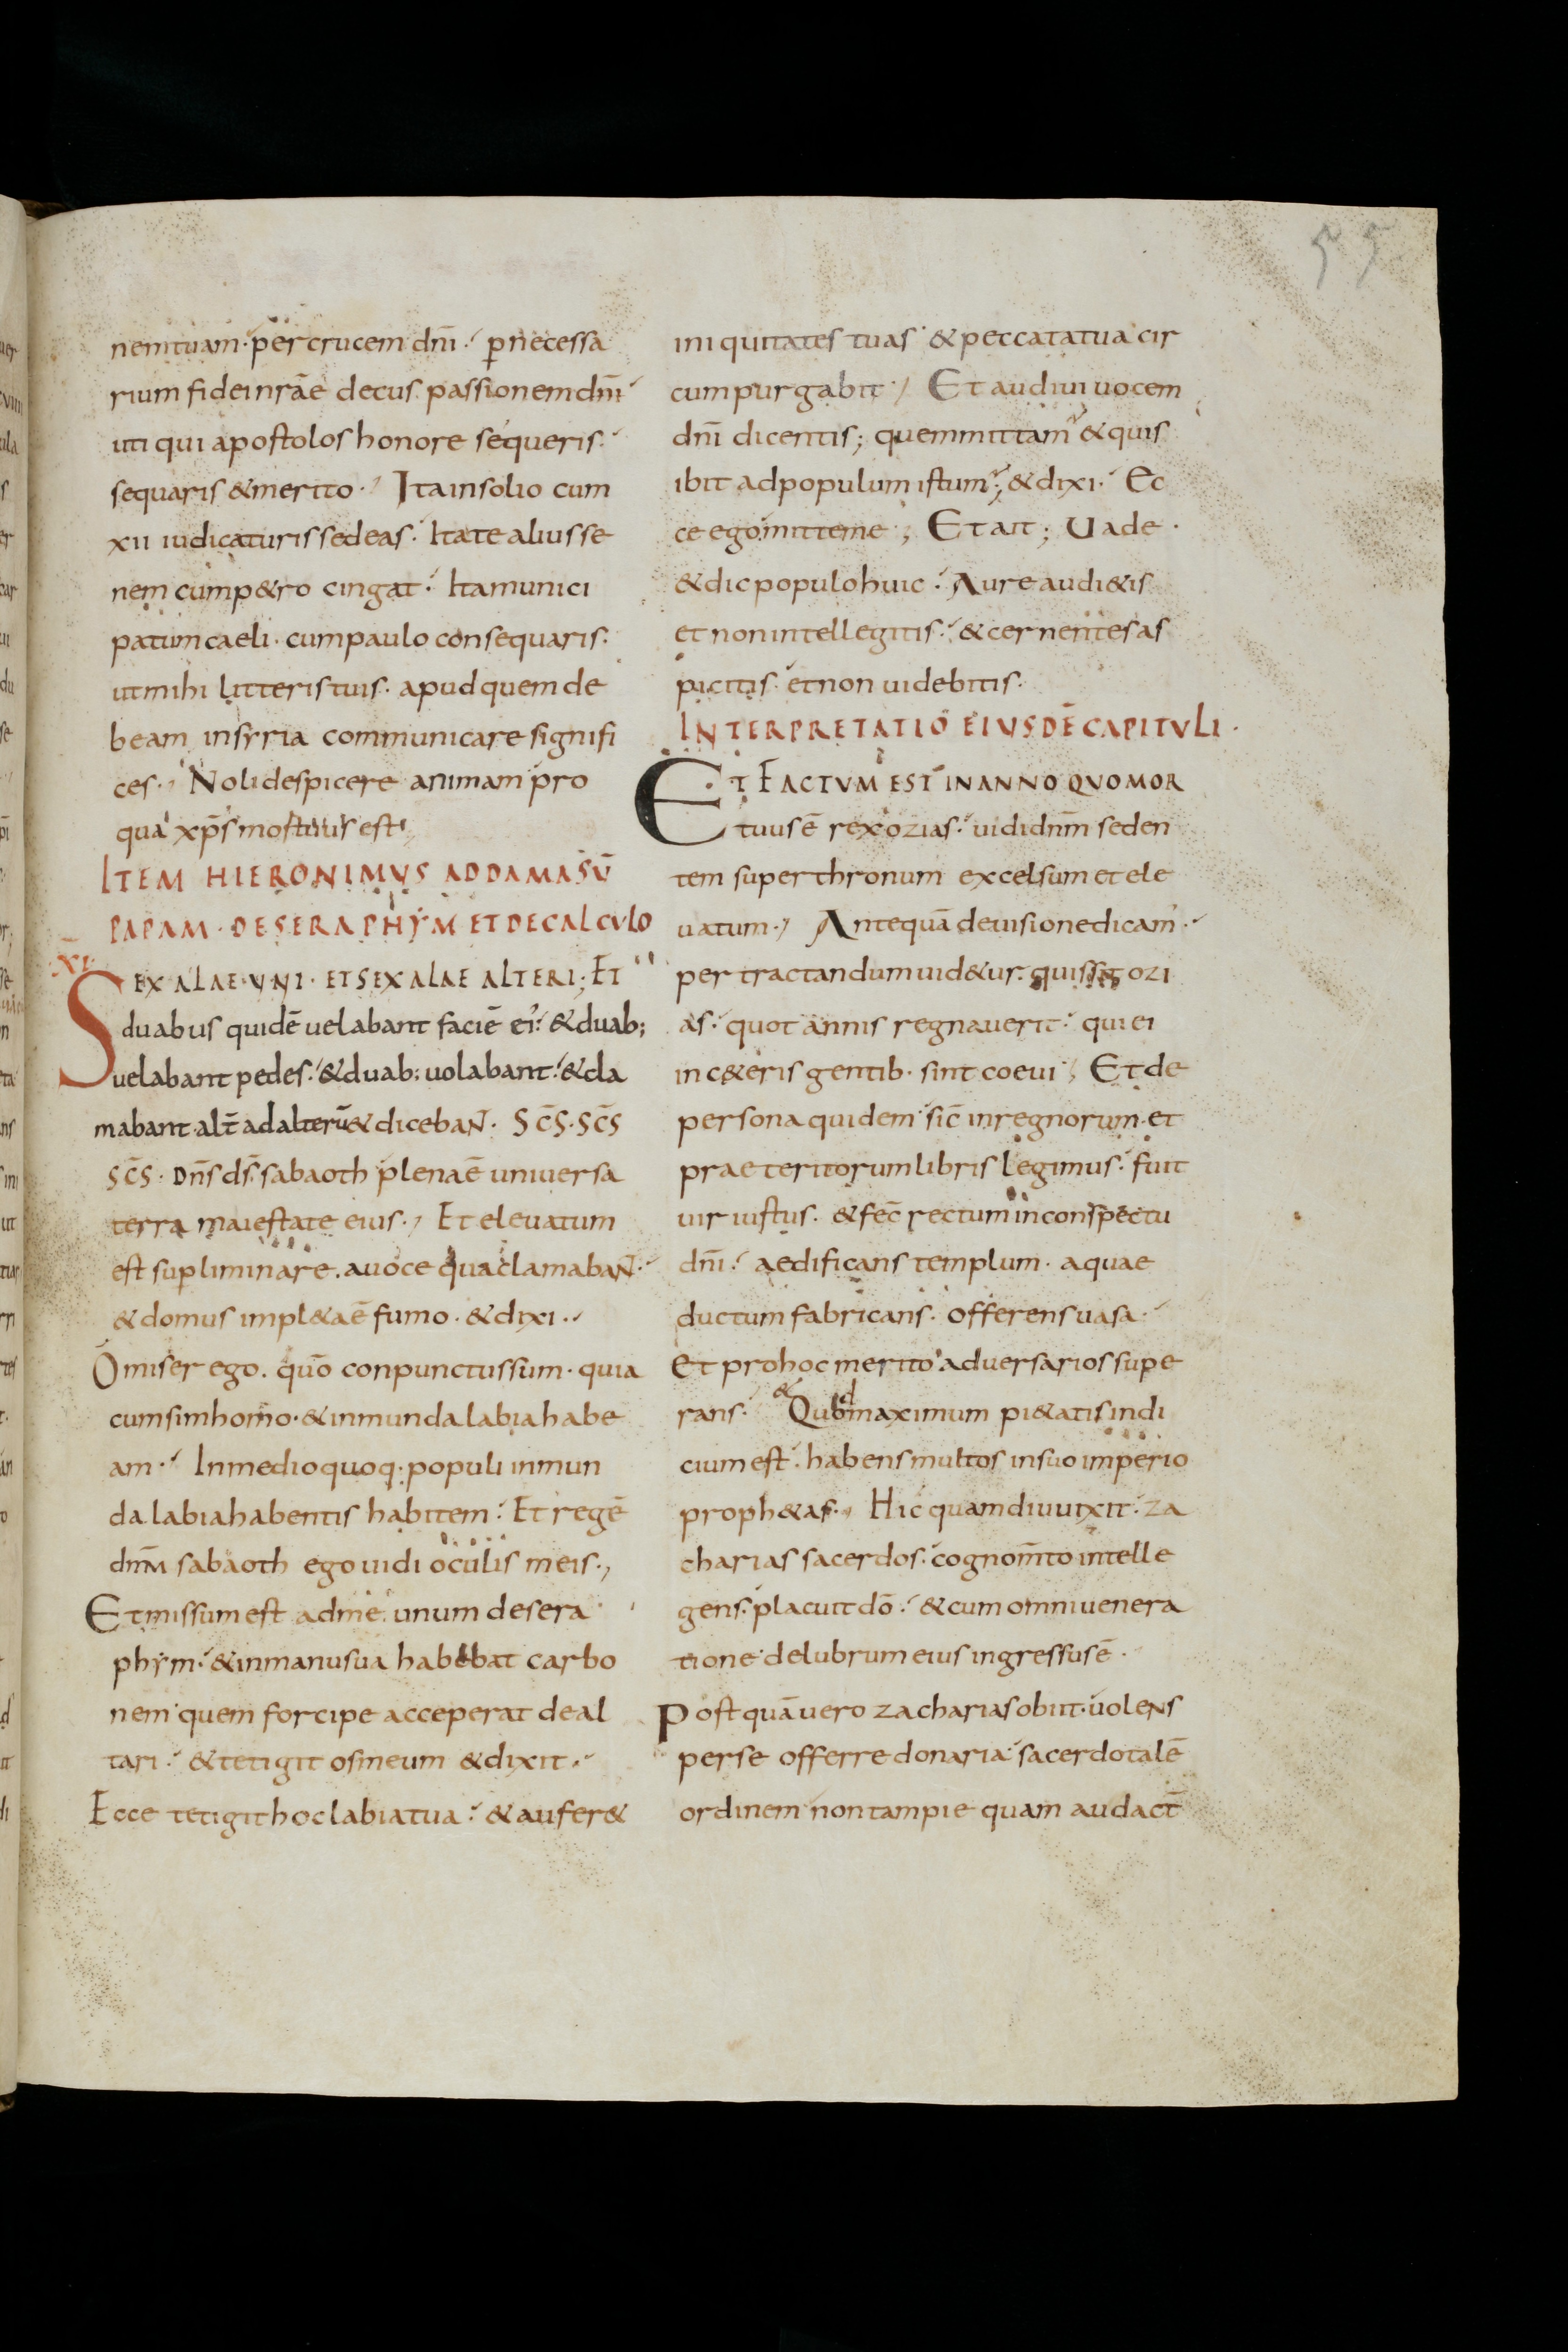 55
nemtuam· per crucem dn̄i· ꝑ necessa
rium fidei nr̄ae decus· passionem dn̄i
uti qui apostolos honore sequeris·
sequaris &merito· Ita insolio cum
xii iudicaturis sedeas· Ita te alius se
nem cum p&ro cingat· Ita munici
patum caeli· cum paulo consequaris·
ut mihi litteris tuis· apud quem de
beam insyria communicare signifi
ces· Noli despicere animam pro
qua xp̄s mortuus est
ITEM HIERONIMUS AD DAMASŪ
PAPAM· DE SERAPHYM ET DE CALCULO
XI·
SEX ALAE· UNI· ET SEX ALAE ALTERI; ET
duabus quidē uelabant faciē ei'· &duab;
uelabant pedes· &duab; uolabant· &cla
mabant· alt̄ ad alterū & dicebaN̄· SC̄S· SC̄S
SC̄S· Dn̄s ds̄· sabaoth plena ē universa
terra maiestate eius· Et elevatum
est supliminare· auoce qua clamabaN̄·
&domus impl&a ē fumo· &dixi··
O miser ego· quō conpunctus sum· quia
cum sim homo· &inmunda labia habe
am· In medio quoq· populi inmun
da labia habentis habitem· Et regē
dn̄m sabaoth ego uidi oculis meis·
Et missum est ad me· unum de sera
phym· &in manu sua habebat carbo
nem quem forcipe acceperat de al
tari· &tetigit os meum &dixit·
Ecce tetigit hoc labia tua· &aufer&
iniquitates tuas &peccata tua cir
cumpurgabit· Et audivi uocem
dn̄i dicentis; quem mittam &quis
ibit ad populum istum; &dixi· Ec
ce ego mitte me; Et ait; Uade·
&dic populo huic· Aure audi&is
et non intellegitis· &cernentes as
picitis· et non uidebitis·
INTERPRETATIO EIUSDĒ CAPITULI·
ET FACTUM EST IN ANNO QUO MOR
tuus ē rex ozias· uidi dn̄m seden
tem super thronum excelsum et ele
uatum· Antequā de uisione dicam·
pertractandum uid&ur· quis sit ozi
as· quot annis regnauerit· qui ei
in c&eris gentib· sint coeui; Et de
persona quidem sic̄ in regnorum et
praeteritorum libris legimus· fuit
uir iustus· &fec̄ rectum in conspectu
dn̄i· aedificans templum· aquae
ductum fabricans· offerens uasa·
Et pro hoc merito adversarios supe
rans· & Quod maximum pi&atis indi
cium est· habens multos in suo imperio
proph&as· Hic quamdiu uixit· za
charias sacerdos· cognom̄to intelle
gens· placuit dō· &cum omni uenera
tione delubrum eius ingressus ē·
Post quā uero zacharias obiit· uolens
per se offerre donaria· sacerdotalē
ordinem non tam pie quam audact̄